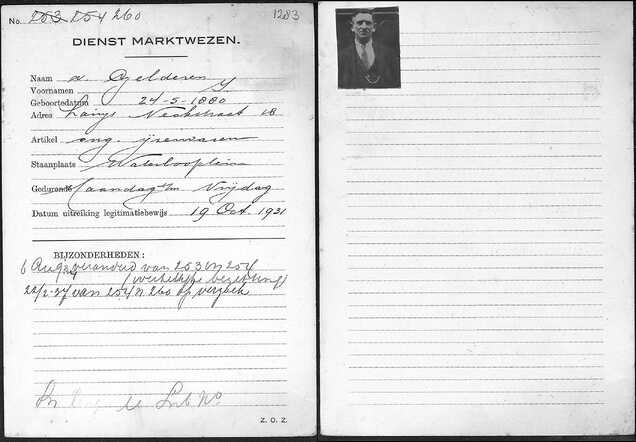 No. 253 254 260
1283
DIENST MARKTWEZEN.
Naam v. Gelderen
Voornamen Y
Geboortedatum 24-5-1880
Adres Lange 18
Artikel eng. ijzerwaren
Staanplaats Waterlooplein
Gedurende Maandag t/m Vrijdag
Datum uitreiking legitimatiebewijs 19 Oct. 1931
BIJZONDERHEDEN:
6 Aug 34 veranderd van 253 in 254
bezetting)
22/2-37 van 254 n. 260 op verzoek
Z. O. Z.